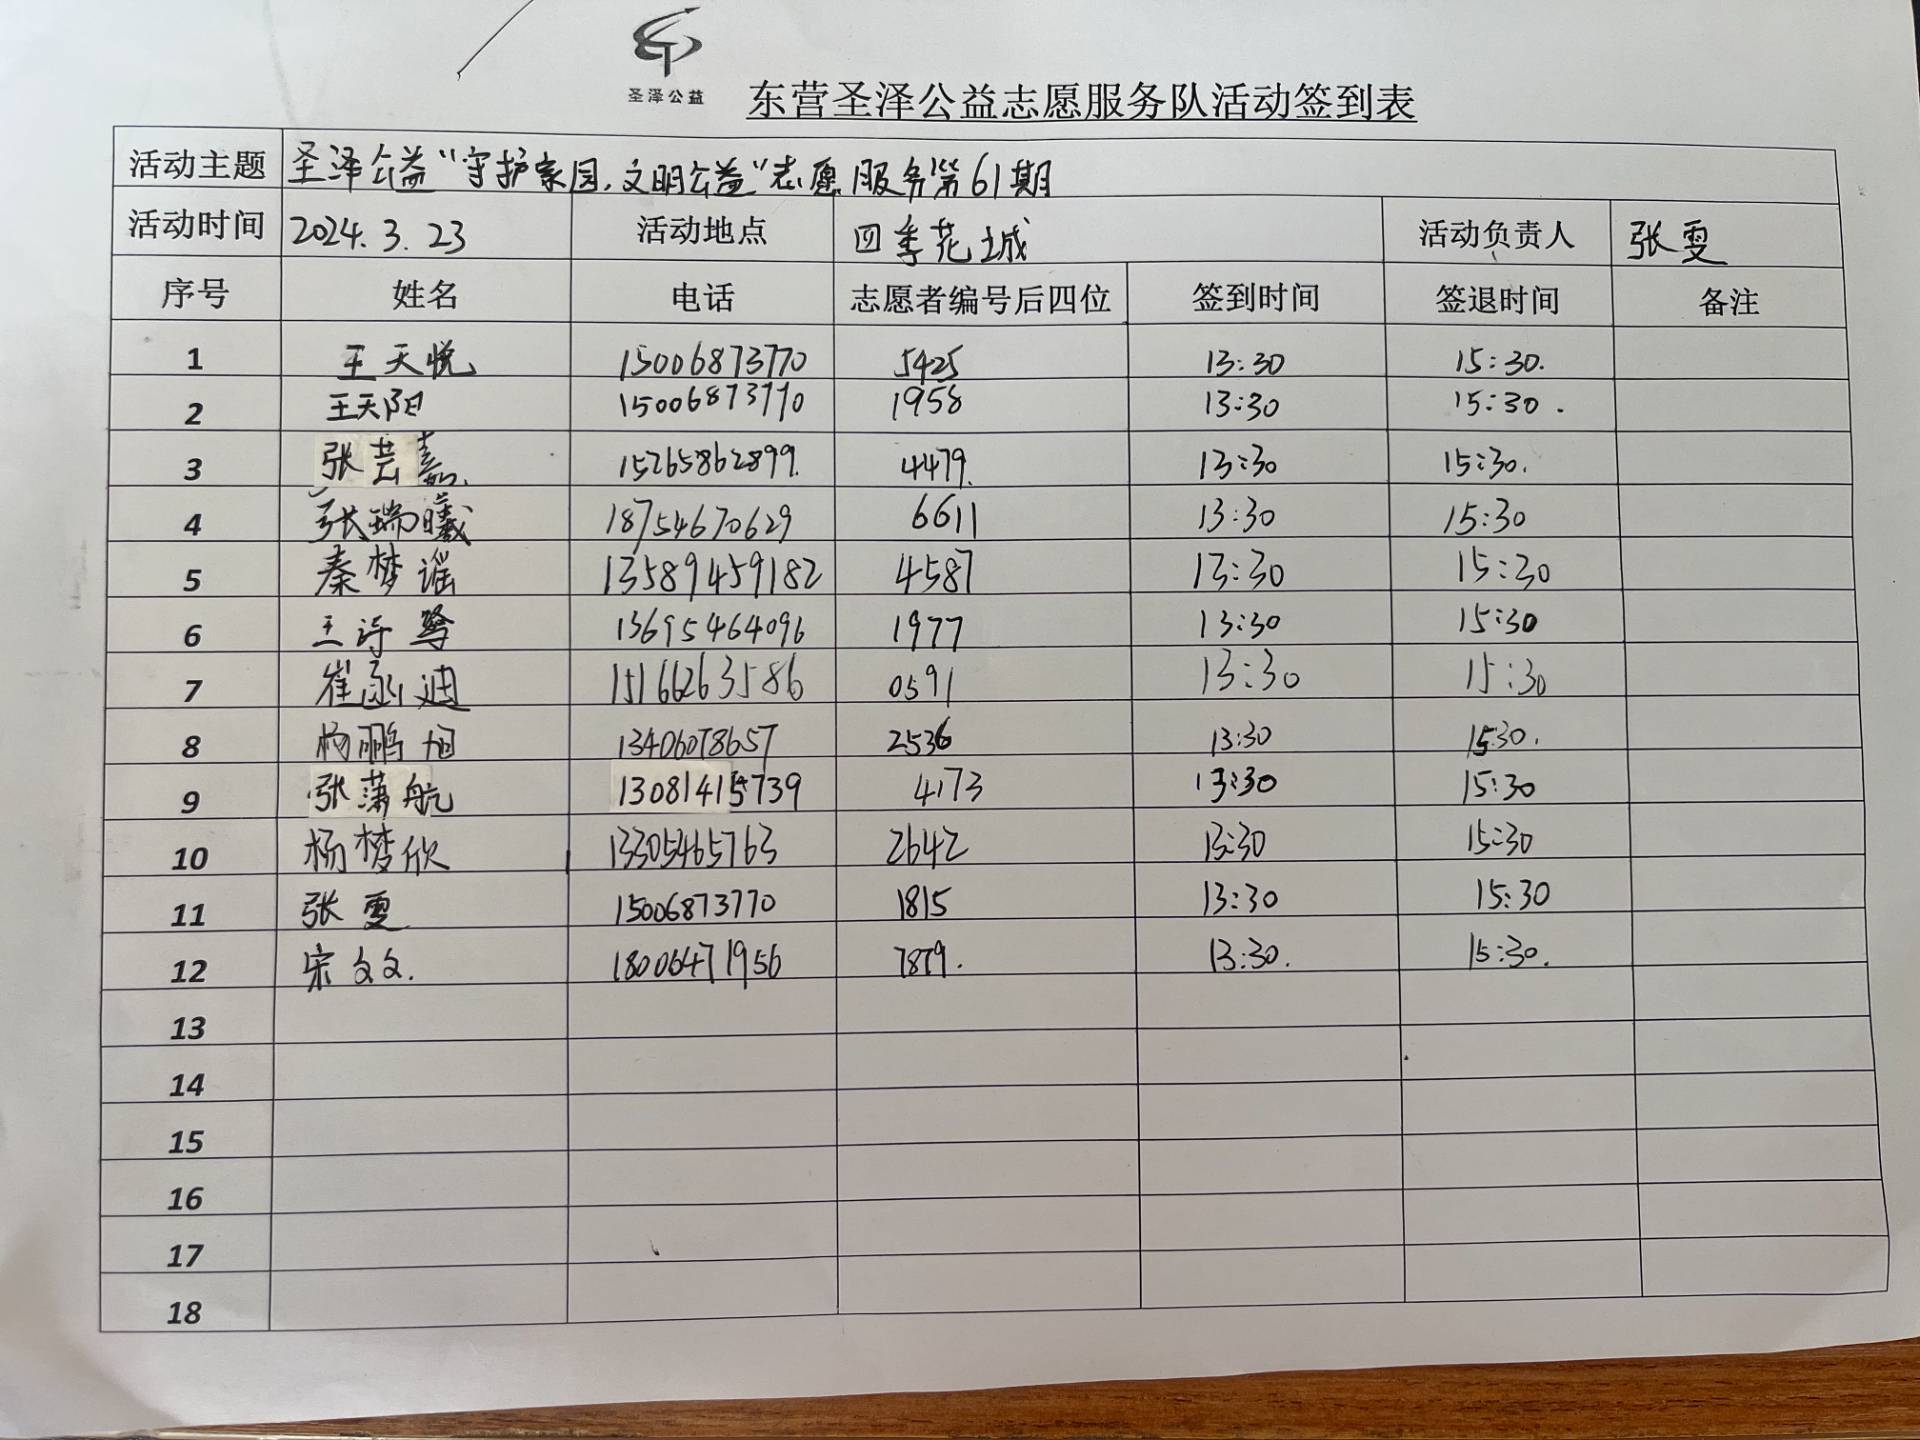 圣泽公益
东营圣泽公益志愿服务队活动签到表
活动主题 圣泽公益“守护家园,文明公益”志愿服务第61期
活动时间 2024.3.23 活动地点 四季花城 活动负责人 张雯
序号 姓名 电话 志愿者编号后四位 签到时间 签退时间 备注
1 王天悦 15006873770 5425 13:30 15:30.
2 王天阳 15006873770 1958 13:30 15:30.
3 张芸嘉. 15265862899. 4479. 13:30 15:30.
4 张瑞曦 18754670629 6611 13:30 15:30
5 秦梦谣 13589459182 4587 13:30 15:30
6 王诗 13695464096 1977 13:30 15:30
7 崔函迪 15166263586 0591 13:30 15:30
8 杨鹏旭 13406078657 2536 13:30 1530.
9 张潇航 13081415739 4173 13:30 15:30
10 杨梦欣 13305465763 2642 13:30 15:30
11 张雯 15006873770 1815 13:30 15:30
12 宋文文. 18006471956 7879. 13:30. 15:30.
13
14
15
16
17
18